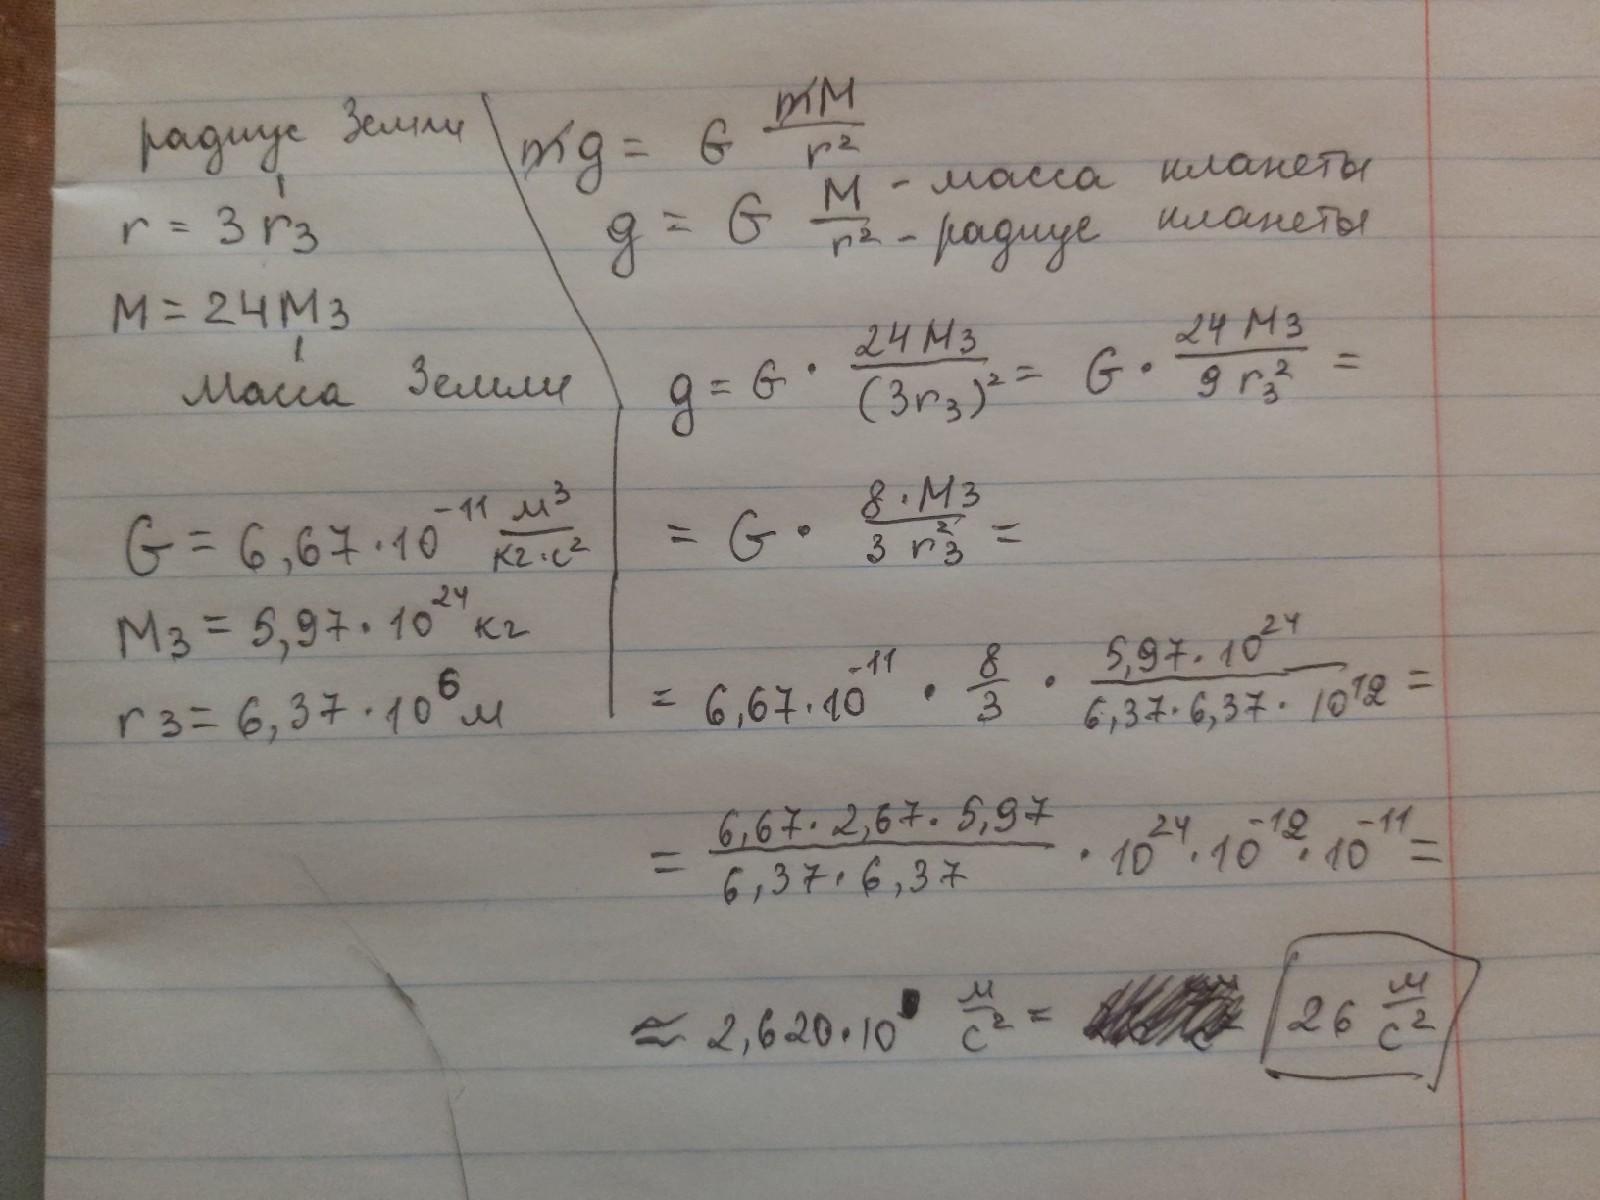 радиус Земли
r = 3 r₃
M = 24 M₃
Масса Земли
G = 6,67·10⁻¹¹ м³/кг·с²
M₃ = 5,97·10²⁴ кг
r₃ = 6,37·10⁶ м
mg = G mM/r²
g = G M/r²
M - масса планеты
r² - радиус планеты
g = G · 24 M₃/(3r₃)² = G · 24 M₃/9 r₃² =
= G · 8·M₃/3 r₃² =
= 6,67·10⁻¹¹ · 8/3 · 5,97·10²⁴/6,37·6,37·10¹² =
= 6,67·2,67·5,97/6,37·6,37 · 10²⁴·10⁻¹²·10⁻¹¹ =
≈ 2,620·10 м/с² = 26 м/с²